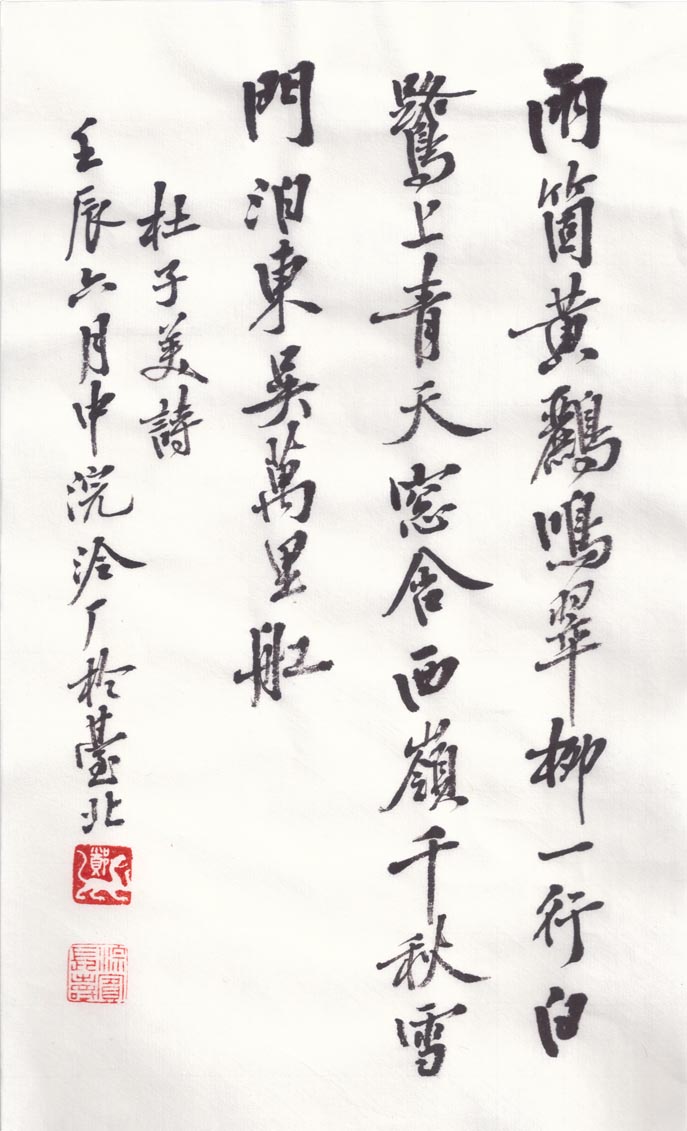 兩箇黃鸝鳴翠柳一行白
鷺上青天窓含西嶺千秋雪
門泊東吳萬里舡
杜子美詩
壬辰六月中浣厂於臺北